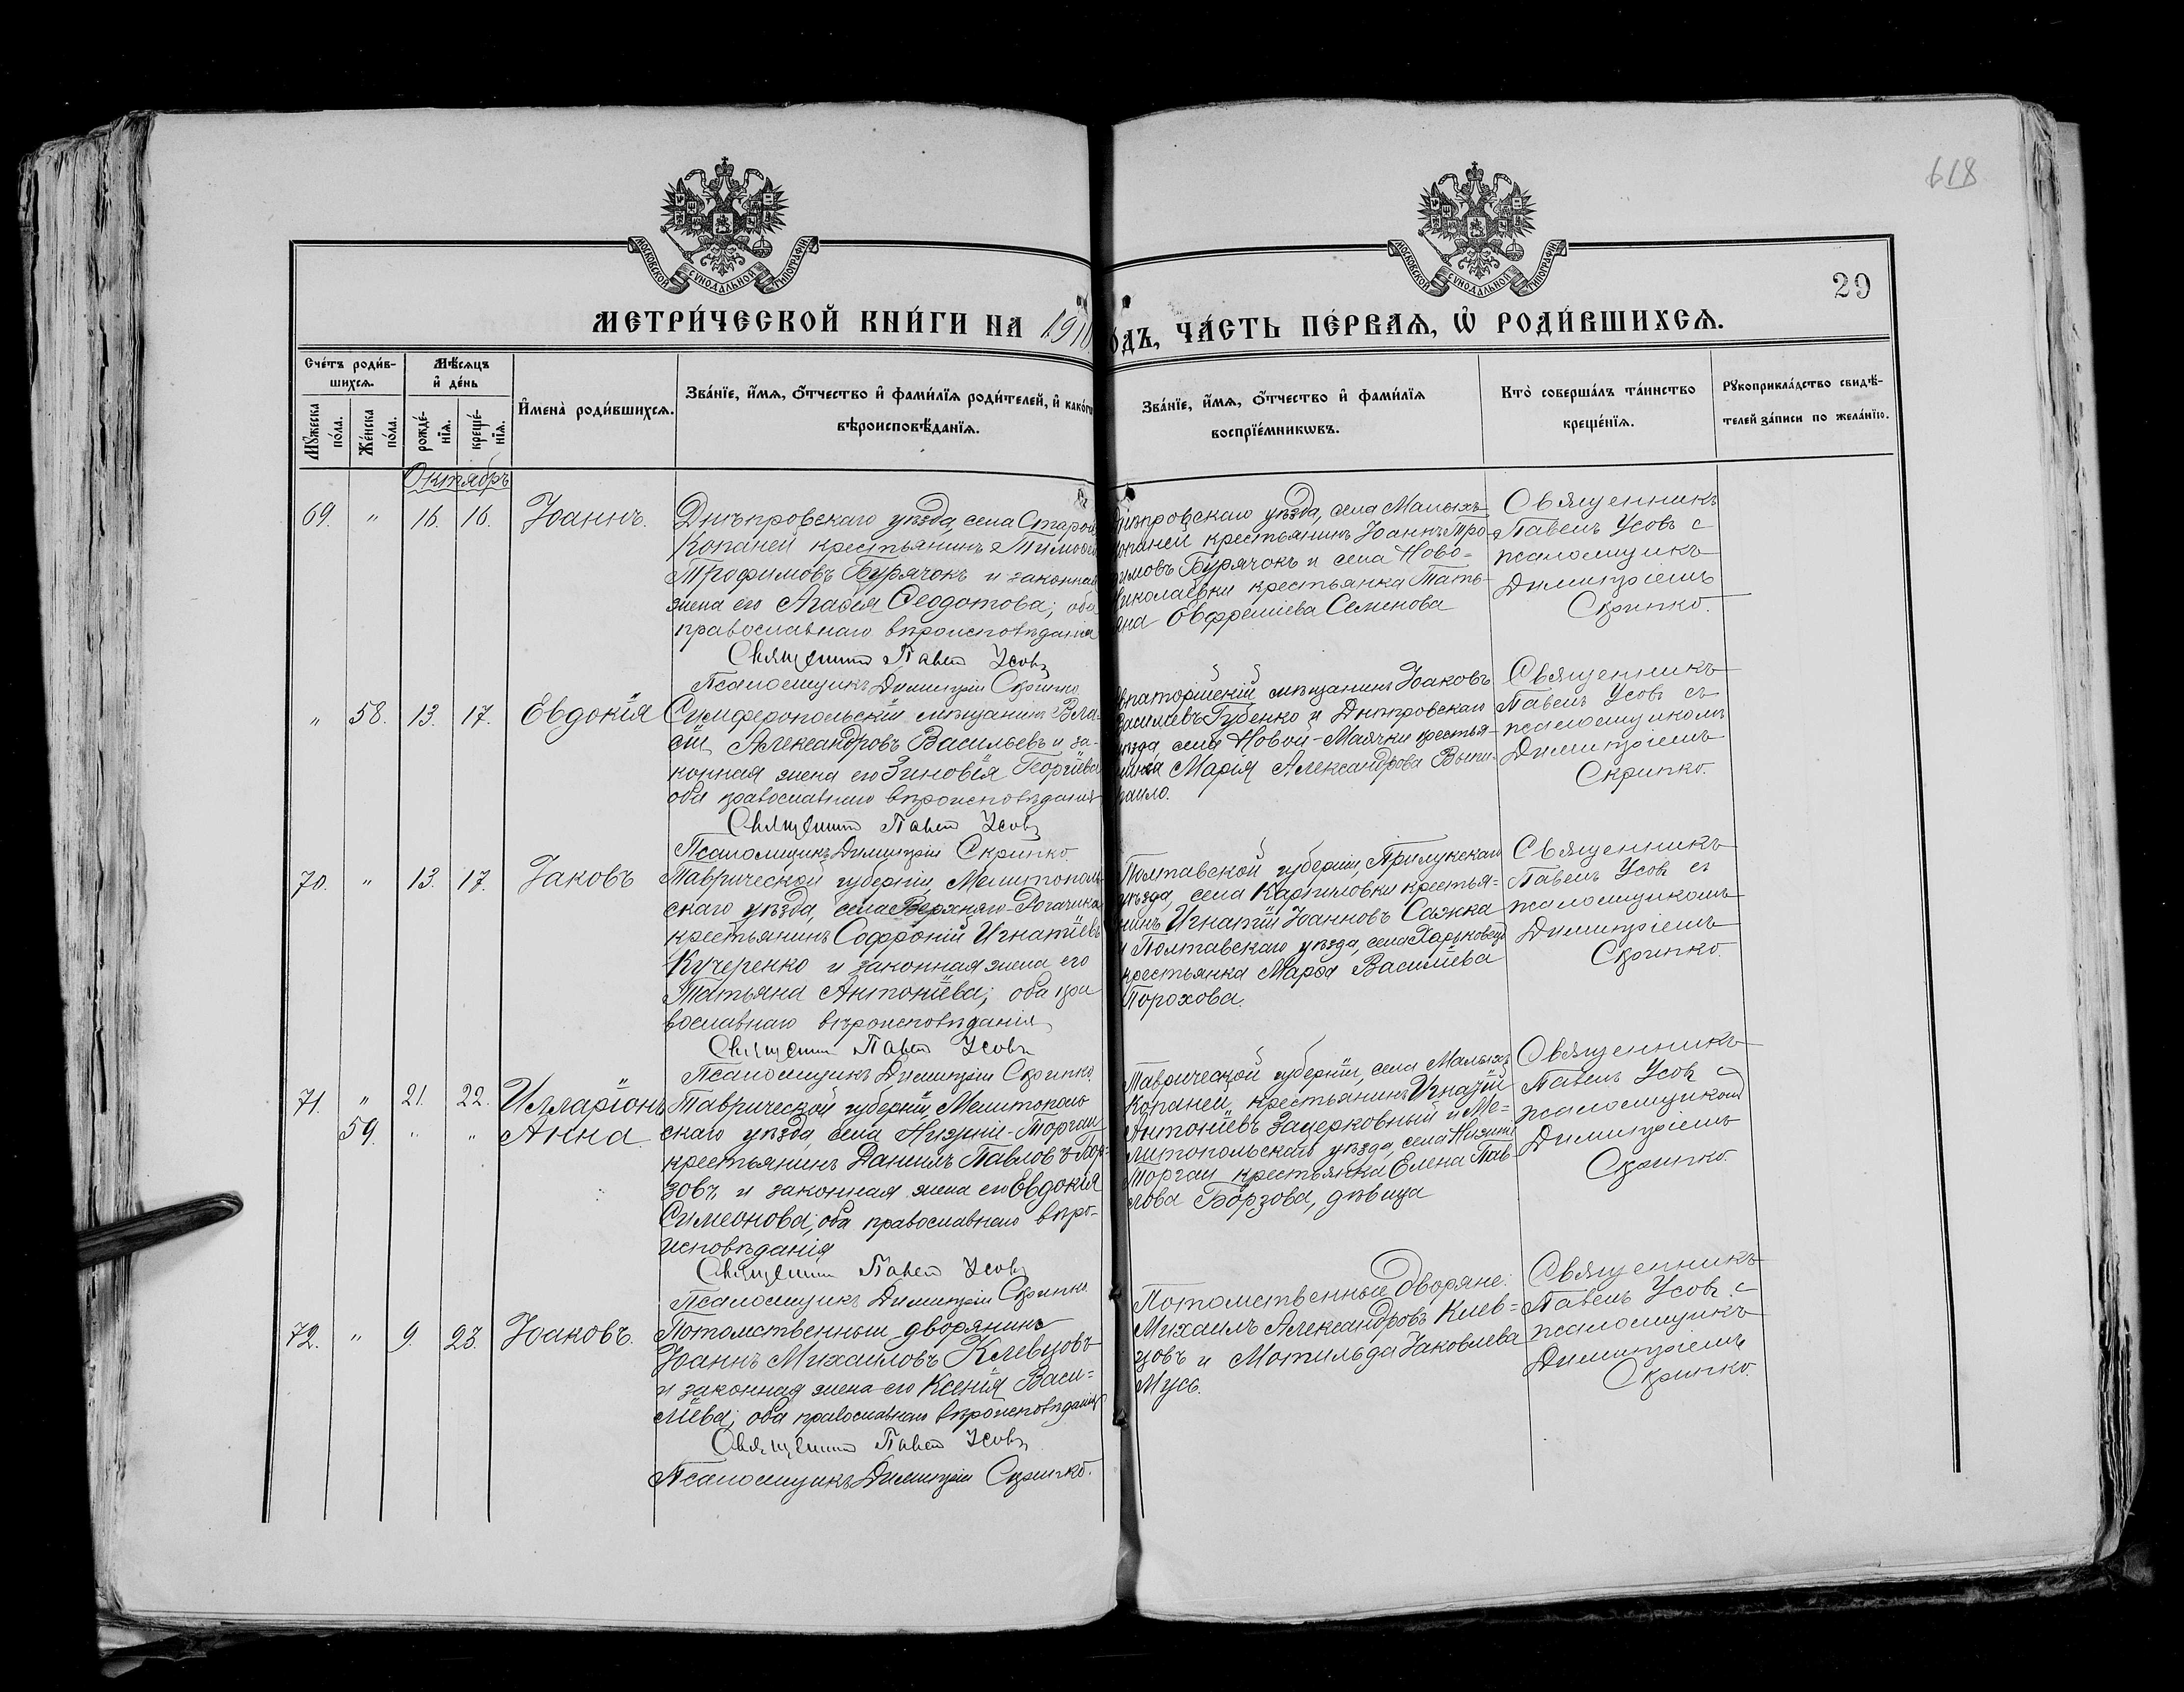 618
МОСКОВСКОЙ СУНОДАЛЬНОЙ ТИПОГРАФІИ
МОСКОВСКОЙ СУНОДАЛЬНОЙ ТИПОГРАФІИ
29
МЕТРИ́ЧЕСКОЙ КНИ́ГИ НА 1910
О́ДЪ, ЧА́СТЬ ПЕ́РВАѦ, Ѽ РОДИ́ВШИХСѦ.
Сче́тъ роди́в-
шихсѧ.
Мѣ́сѧцъ
и҆ де́нь
Мꙋ́жеска по́ла.
Же́нска по́ла.
рожде́-нїѧ.
креще́-нїѧ.
И҆мена̀ роди́вшихсѧ.
Зва́нїе, и҆́мѧ, ѻ҆́тчество и҆ фами́лїѧ роди́телей, и҆ како́гѡ
вѣроисповѣ́данїѧ.
Зва́нїе, и҆́мѧ, ѻ҆́тчество и҆ фами́лїѧ
воспрїе́мникѡвъ.
Кто̀ соверша́лъ та́инство
креще́нїѧ.
Рꙋкоприкла́дство свидѣ́-
телей за́писи по жела́нїю.
Октябрь
69. " 16. 16. Іоаннъ.
Днѣпровскаго уѣзда, села Старой
Копаней крестьянинъ Тимоѳей
Трофимовъ Бурячокъ и законная
жена его Агаѳія Ѳеодотова; оба
православнаго вѣроисповѣданія
Священникъ Павелъ Усовъ
Псаломщикъ Димитрій Скрипко.
Днѣпровскаго уѣзда, села Малыхъ
Копаней крестьянинъ Іоаннъ Тро-
фимовъ Бурячокъ и села Ново-
Николаевки крестьянка Тать-
яна Евфреміева Семенова
Священникъ
Павелъ Усовъ с
псаломщикъ
Димитріемъ
Скрипко.
" 58. 13. 17. Евдокія
Симферопольскій мѣщанинъ Вла-
сій Александровъ Васильевъ и за-
конная жена его Зиновія Георгіева
оба православнаго вѣроисповѣданія
Священникъ Павелъ Усовъ
Псаломщикъ Димитрій Скрипко.
Евпаторійскій мѣщанинъ Іаковъ
Василіевъ Губенко и Днѣпровскаго
уѣзда, села Новой-Маячки крестья-
нка Марія Александрова
Священникъ
Павелъ Усовъ съ
псаломщикомъ
Димитріемъ
Скрипко.
70. " 13. 17. Іаковъ
Таврической губерніи, Мелитополь
скаго уѣзда, села Верхняго-Рогачика
крестьянинъ Софроній Игнатіевъ
Кучеренко и законная жена его
Татьяна Антоніева; оба пра
вославнаго вѣроисповѣданія
Священникъ Павелъ Усовъ
Псаломщикъ Димитрій Скрипко.
Полтавской губерніи, Прилукскаго
уѣзда, села Карпиловки крестья-
нинъ Игнатій Іоанновъ Саяжка
и Полтавскаго уѣзда, села Харьковецъ
крестьянка Марѳа Василіева
Порохова.
Священникъ
Павелъ Усовъ съ
псаломщикомъ
Димитріемъ
Скрипко.
71. " 21. 22. Илларіонъ
59. " " Анна
Таврической губерніи, Мелитополь
скаго уѣзда, села Нижніе-Торгаи
крестьянинъ Даніилъ Павловъ Бор-
зовъ и законная жена его Евдокія
Симеонова; оба православнаго вѣро-
исповѣданія
Священникъ Павелъ Усовъ
Псаломщикъ Димитрій Скрипко
Таврической губерніи, села Малыхъ
Копаней, крестьянинъ Игнатій
Антоніевъ Зацерковный и Ме-
литопольскаго уѣзда, села Нижніе
Торгаи крестьянка Елена Пав-
лова Борзова, дѣвица
Священникъ
Павелъ Усовъ с
псаломщикомъ
Димитріемъ
Скрипко.
72. " 9. 23. Іоаковъ.
Потомственный дворянинъ
Іоаннъ Михаиловъ Клевцовъ
и законная жена его Ксенія Васи-
ліева; оба православнаго вѣроисповѣданія
Священникъ Павелъ Усовъ
Псаломщикъ Димитрій Скрипко.
Потомственные дворяне:
Михаилъ Александровъ Клев-
цовъ и Мотильда Іаковлева
Мусъ.
Священникъ
Павелъ Усовъ с
псаломщикъ
Димитріемъ
Скрипко.